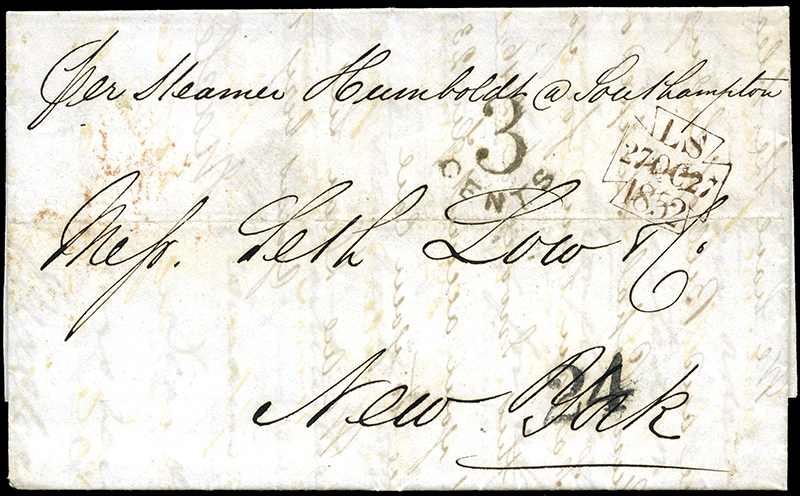 per Steamer Humboldt @ Southampton
3
CENTS
LS
27OC27
1852
Messr. Seth Low & Co.
New York
24